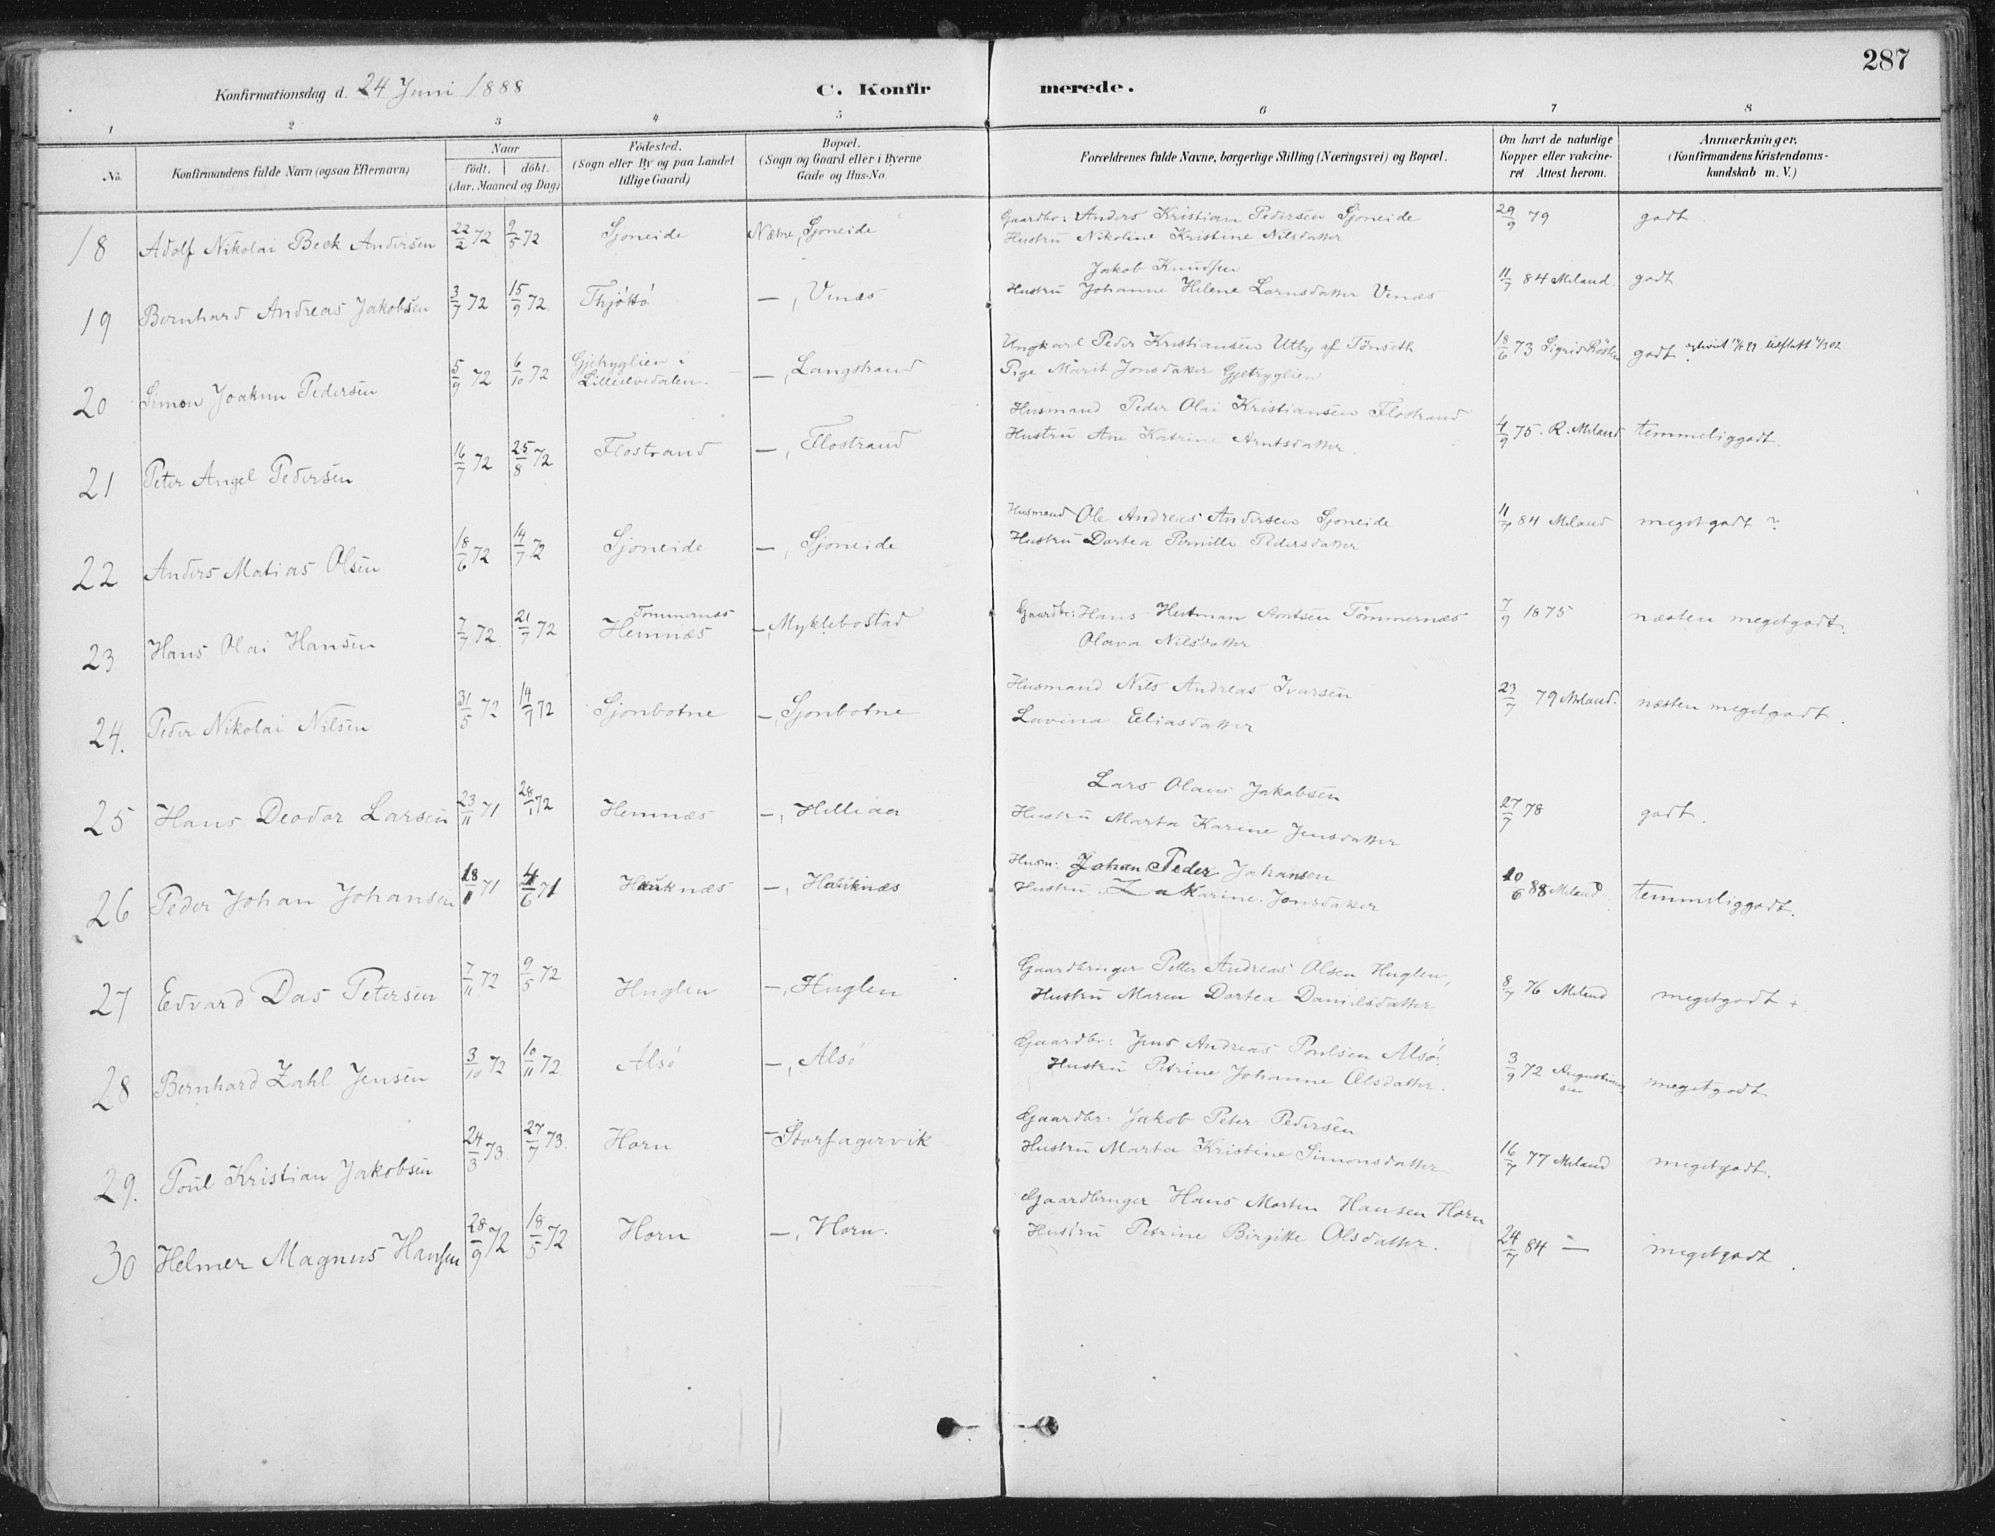 287
Konfirmationsdag d. 24 Juni 1888
C. Konfirmerede.
1 2 3 4 5 6 7 8
No. | Konfirmandens fulde Navn (ogsaa Efternavn) | Naar født. döbt. (Aar, Maaned og Dag) | Födested. (Sogn eller By og paa Landet tillige Gaard) | Bopæl. (Sogn og Gaard eller i Byerne Gade og Hus-No. | Forældrenes fulde Navne, borgerlige Stilling (Næringsvei) og Bopæl. | Om havt de naturlige Kopper eller vakcineret Attest herom. | Anmærkninger. (Konfirmandens Kristendomskundskab m. V.)
18 Adolf Nikolai Beck Andersen 22/2 72 9/5 72 Sjoneide Næsne, Sjoneide Gaardbr: Anders Kristian Pedersen Sjoneide 29/9 79 godt
Hustru Nikoline Kristine Nilsdatter
Jakob Knudsen
19 Bernhard Andreas Jakobsen 3/7 72 15/9 72. Thjøttø —, Venæs Hustru Johanne Helene Larnsdatter Venæs 11/7 84 Meland godt
20 Simon Joakim Pedersen 5/9 72 6/10 72 Gjetryglien i Lilleelvedalen. —, Langstrand Ungkarl Peder Kristiansen Utby af Tönseth 18/6 73 Sigrid godt
Pige Marit Jonsdatter Gjetryglien
21 Peter Angel Pedersen 16/7 72 25/8 72 Flostrand —, Flostrand Husmand Peder Olai Kristiansen Flostrand 4/9 75. R. Meland temmeliggodt.
Hustru Ane Katrine Arntsdatter.
22 Anders Matias Olsen 18/6 72 14/7 72 Sjoneide —, Sjoneide Husmand Ole Andreas Andersen Sjoneide 11/7 84 Meland megetgodt ?
Hustru Dortea Pernille Pedersdatter
23 Hans Olai Hansen 7/7 72. 21/7 72 Tommernæs Hemnæs —, Myklebostad Gaardbr: Hans Hertman Arntsen Tömmernæs 7/9 1875 næsten megetgodt.
Olava Nilsdatter
24. Peder Nikolai Nilsen 31/5 72 14/7 72 Sjonbotne —, Sjonbotne Husmand Nils Andreas Ivarsen 23/7 79 Meland. næsten megetgodt.
Lavina Eliasdatter
25 Hans Deodor Larsen 23/11 71 28/1 72 Hemnæs —, Helliaa Lars Olaus Jakobsen 27/7 78 godt.
Hustru Marta Karine Jensdatter
26 Peder Johan Johansen 18/ 71 4/6 71 Hauknæs —, Hauknæs Husm: Johan Peder Johansen 10/6 88 Meland temmeliggodt.
Hustru Karine Jonsdatter
27 Edvard Das Petersen 7/11 72 9/5 72 Huglen —, Huglen Gaardbruger Petter Andreas Olsen Huglen, 8/7 76 Meland megetgodt +
Hustru Maren Dortea Danielsdatter
28 Bernhard Zahl Jensen 3/10 72 10/11 72 Alsö —, Alsö Gaardbr: Jens Andreas Poulsen Alsö. 3/9 72 megetgodt
Hustru Petrine Johanne Olsdatter.
29. Poul Kristian Jakobsen 24/3 73. 27/7 73. Horn — Storfagervik Gaardbr. Jakob Peter Pedersen 16/7 77 Meland megetgodt.
Hustru Marta Kristine Simonsdatter
30 Helmer Magnus Hansen 28/9 72 18/5 72 Horn —, Horn. Gaardbruger Hans Morten Hansen Horn 24/7 84 — megetgodt.
Hustru Petrine Birgitte Olsdatter.